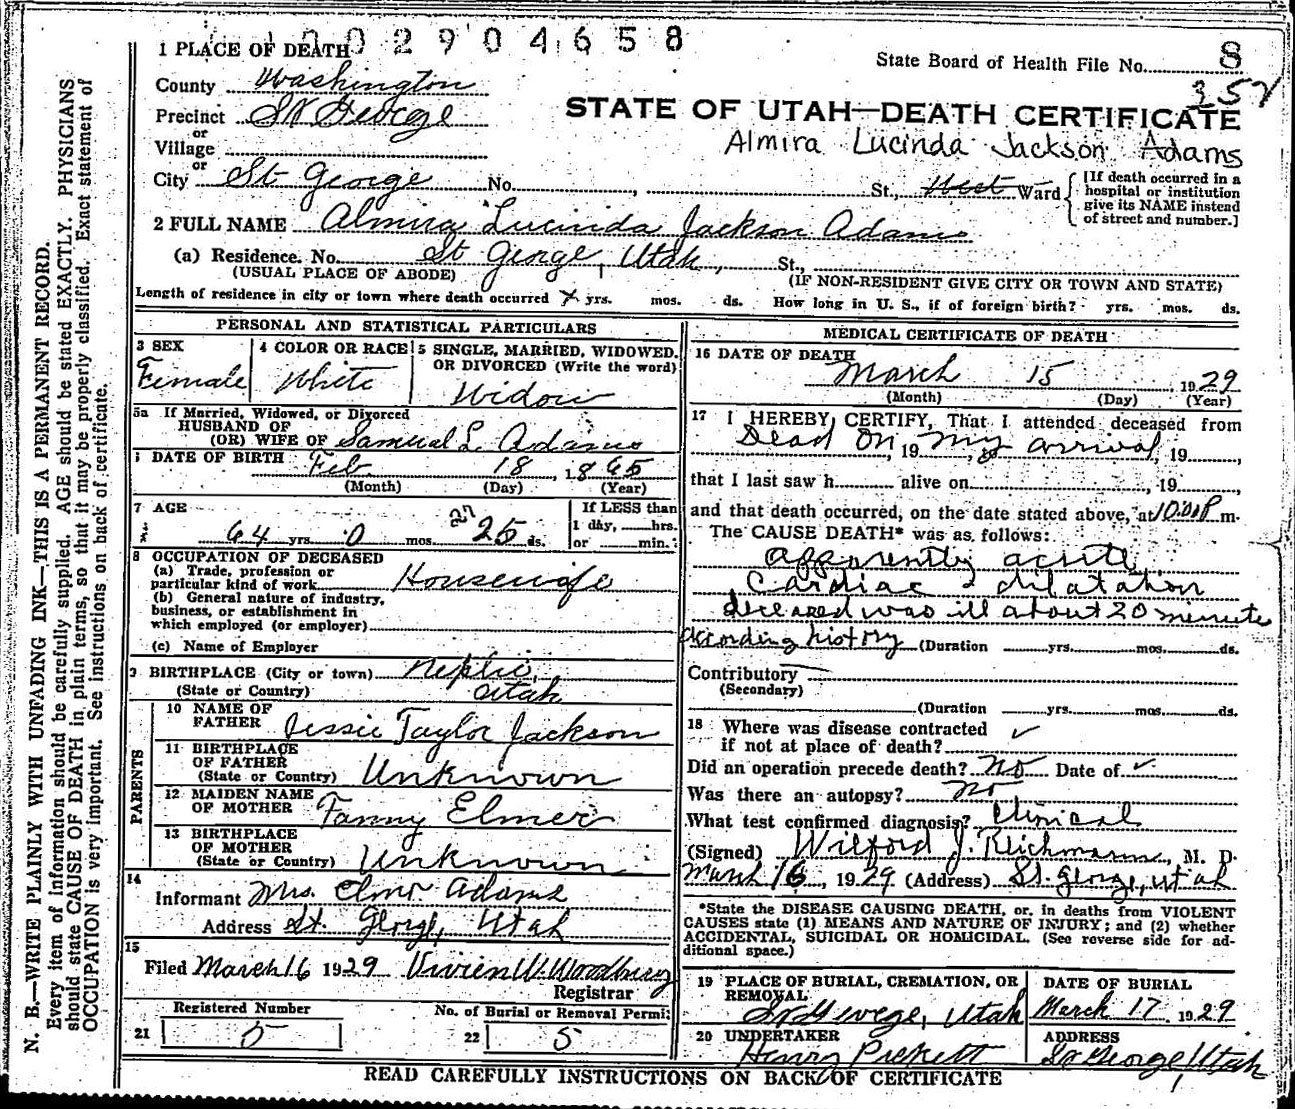 0 0 2 9 0 4 6 5 8
1 PLACE OF DEATH
State Board of Health File No. 8
County Washington
357
Precinct St George
STATE OF UTAH—DEATH CERTIFICATE
or
Village
Almira Lucinda Jackson Adams
or
City St George No. , St., West Ward
[If death occurred in a hospital or institution give its NAME instead of street and number.]
2 FULL NAME Almira Lucinda Jackson Adams
(a) Residence. No. St George, Utah, St.,
(USUAL PLACE OF ABODE) (IF NON-RESIDENT GIVE CITY OR TOWN AND STATE)
Length of residence in city or town where death occurred yrs. mos. ds. How long in U. S., if of foreign birth? yrs. mos. ds.
PERSONAL AND STATISTICAL PARTICULARS
3 SEX
Female
4 COLOR OR RACE
White
5 SINGLE, MARRIED, WIDOWED,
OR DIVORCED (Write the word)
Widow
5a If Married, Widowed, or Divorced
HUSBAND OF
(OR) WIFE OF Samuel L. Adams
DATE OF BIRTH Feb 18, 1865
(Month) (Day) (Year)
7 AGE
64 yrs. 0 mos. 27 25 ds.
If LESS than
1 day, hrs.
or min.
8 OCCUPATION OF DECEASED
(a) Trade, profession or
particular kind of work Housewife
(b) General nature of industry,
business, or establishment in
which employed (or employer)
(c) Name of Employer
9 BIRTHPLACE (City or town) Nephi,
(State or Country) Utah
PARENTS
10 NAME OF
FATHER Jessie Taylor Jackson
11 BIRTHPLACE
OF FATHER
(State or Country) Unknown
12 MAIDEN NAME
OF MOTHER Fanny Elmer
13 BIRTHPLACE
OF MOTHER
(State or Country) Unknown
14
Informant Mrs. Elmr Adams
Address St. George, Utah
15
Filed March 16 1929 Vivien W. Woodbury
Registrar
Registered Number
21 5
No. of Burial or Removal Permit
22 5
MEDICAL CERTIFICATE OF DEATH
16 DATE OF DEATH
March 15 1929
(Month) (Day) (Year)
17 I HEREBY CERTIFY, That I attended deceased from
Dead on, 19 my, to arrival, 19
that I last saw h alive on , 19
and that death occurred, on the date stated above, at m.
The CAUSE DEATH* was as follows:
apparently acute
Cardiac dilatation
deceased was ill about 20 minutes
according history (Duration yrs. mos. ds.
Contributory
(Secondary)
(Duration yrs. mos. ds.
18 Where was disease contracted
if not at place of death?
Did an operation precede death? no Date of
Was there an autopsy? no
What test confirmed diagnosis? Clinical
(Signed) Wilford J. Reichmann, M. D.
March 16, 1929 (Address) St. George, Utah
*State the DISEASE CAUSING DEATH, or, in deaths from VIOLENT
CAUSES state (1) MEANS AND NATURE OF INJURY; and (2) whether
ACCIDENTAL, SUICIDAL OR HOMICIDAL. (See reverse side for ad-
ditional space.)
19 PLACE OF BURIAL, CREMATION, OR
REMOVAL
St George, Utah
DATE OF BURIAL
March 17 1929
20 UNDERTAKER
Henry Pickett
ADDRESS
St George, Utah
READ CAREFULLY INSTRUCTIONS ON BACK OF CERTIFICATE
N. B.—WRITE PLAINLY WITH UNFADING INK—THIS IS A PERMANENT RECORD.
Every item of information should be carefully supplied. AGE should be stated EXACTLY. PHYSICIANS
should state CAUSE OF DEATH in plain terms, so that it may be properly classified. Exact statement of
OCCUPATION is very important. See instructions on back of certificate.